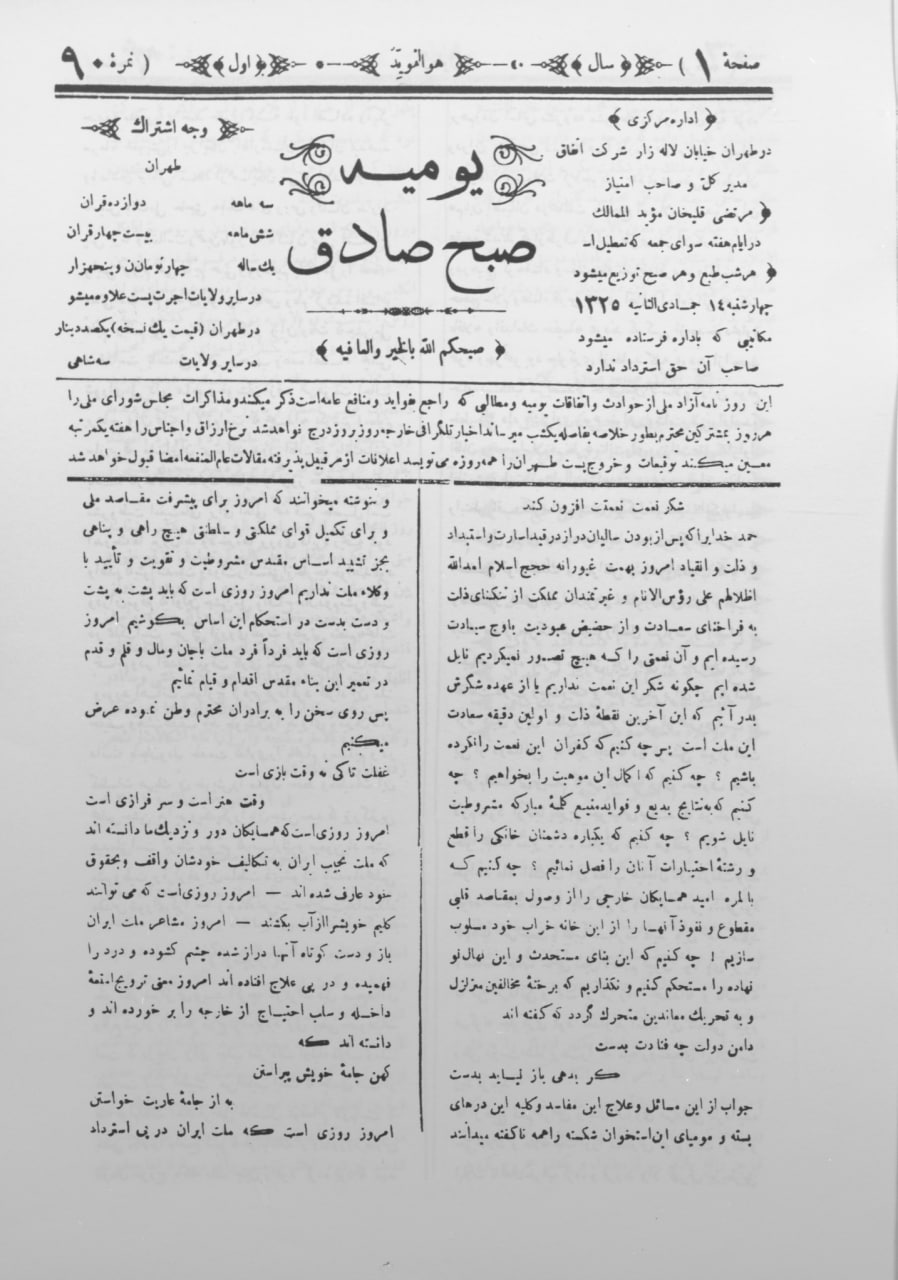 صفحهٔ ۱ ) ﴿ سال ﴾ هوالمویّد ﴿ اول ﴾ ( نمرهٔ ۹۰
﴿ اداره مرکزی ﴾
درطهران خیابان لاله زار شرکت اتفاق
مدیر کل و صاحب امتیاز
﴿ مرتضی قلیخان مؤید الممالک
درایام هفته سوای جمعه که تعطیل است
﴿ هرشب طبع و هر صبح توزیع میشود
چهارشنبه ۱۴ جمادی الثانیه ۱۳۲۵
مکاتیبی که باداره فرستاده میشود
صاحب آن حق استرداد ندارد
یومیه
صبح صادق
﴿ صبحکم الله بالخیر والعافیه ﴾
وجه اشتراک
طهران
سه ماهه دوازده قران
شش ماهه بیست چهار قران
یک ساله چهار تومان و پنجهزار
در سایر ولایات اجرت پست علاوه میشو
در طهران (قیمت یک نسخه) یکصد دینار
در سایر ولایات سه شاهی
این روز نامه آزاد ملی از حوادث و اتفاقات یومیه و مطالبی که راجع بفواید و منافع عامه است ذکر میکند و مذاکرات مجلس شورای ملی را
هر روز بمشترکین محترم بطور خلاصه بفاصله یکشب میرساند اخبار تلگرافی خارجه روز بروز درج نواهد شد نرخ ارزاق و اجناس را هفته یکمرتبه
معین میکند توقیعات و خروج پست طهران را همه روزه می نویسد اعلانات از هر قبیل پذیرفته مقالات عام المنفعه امضا قبول خواهد شد
شکر نعمت نعمتت افزون کند
حمد خدایرا که پس از بودن سالیان دراز در قید اسارت و استبداد
و ذلت و انقیاد امروز بهمت غیورانه حجج اسلام امدالله
اظلالهم علی رؤس الانام و غیرتمندان مملکت از تنکنای ذلت
به فراخنای سعادت و از حضیض عبودیت باوج سیادت
رسیده ایم و آن نعمتی را که هیچ تصور نمیکردیم نایل
شده ایم چگونه شکر این نعمت نداریم یا از عهده شکرش
بدر آئیم که این آخرین نقطهٔ ذلت و اولین دقیقه سعادت
این ملت است پس چه کنیم که کفران این نعمت را نکرده
باشیم ؟ چه کنیم که اکمال این موهبت را بخواهیم ؟ چه
کنیم که به نتایج بدیع و فواید منیع کلمهٔ مبارکه مشروطیت
نایل شویم ؟ چه کنیم که یکباره دشمنان خانکی را قطع
و رشتهٔ اختیارات آنان را فصل نمائیم ؟ چه کنیم که
بالمره امید همسایکان خارجی را از وصول بمقاصد قلبی
مقطوع و نفوذ آنها را از این خانه خراب خود مسلوب
سازیم ! چه کنیم که این بنای مستحدث و این نهال نو
نهاده را مستحکم کنیم و نکذاریم که برخنهٔ مخالفین متزلزل
و به تحریک معاندین متحرک گردد که کفته اند
دامن دولت چه فتادت بدست
کر بدهی باز نیاید بدست
جواب از این مسائل و علاج این مفاسد و کلیه این درهای
بسته و مومیای این استخوان شکسته را همه ناکفته میدانند
و ننوشته میخوانند که امروز برای پیشرفت مقاصد ملی
و برای تکمیل قوای مملکتی و سلطنتی هیچ راهی و پناهی
بجز تشیید اساس مقدس مشروطیت و تقویت و تأیید با
وکلاء ملت نداریم امروز روزی است که باید پشت به پشت
و دست بدست در استحکام این اساس بکوشیم امروز
روزی است که باید فرداً فرد ملت باجان و مال و قلم و قدم
در تعمیر این بناء مقدس اقدام و قیام نمائیم
پس روی سخن را به برادران محترم وطن نموده عرض
میکنیم
غفلت تا کی نه وقت بازی است
وقت هنر است و سر فرازی است
امروز روزی است که همسایکان دور و نزدیک ما دانسته اند
که ملت نجیب ایران به تکالیف خودشان واقف و بحقوق
خود عارف شده اند — امروز روزی است که می توانند
کلیم خویش را از آب بکشند — امروز مشاعر ملت ایران
باز و دست کوتاه آنها دراز شده چشم کشوده و درد را
فهمیده و در پی علاج افتاده اند امروز معنی ترویج امتعهٔ
داخله و سلب احتیاج از خارجه را بر خورده اند و
دانسته اند که
کهن جامهٔ خویش پیراستن
به از جامهٔ عاریت خواستن
امروز روزی است که ملت ایران در پی استرداد